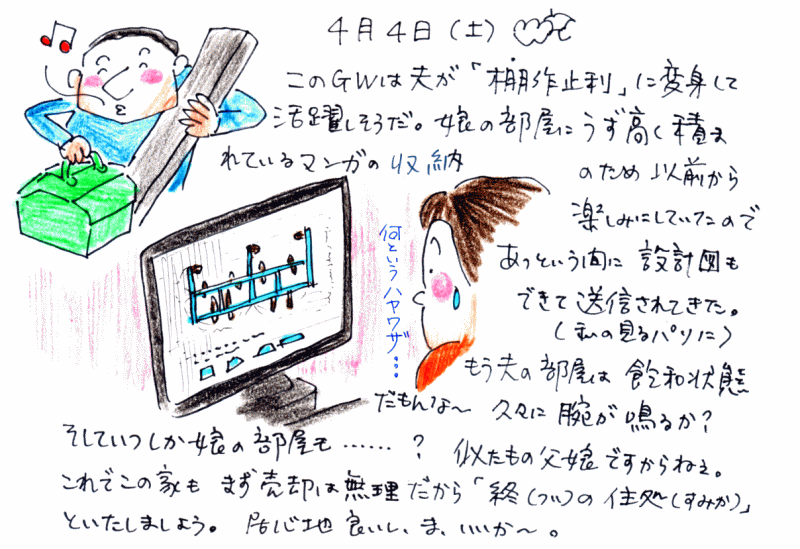 4月4日(土)
このGWは夫が「棚作止利」に変身して
活躍しそうだ。娘の部屋にうず高く積ま
れているマンガの収納
のため以前から
楽しみにしていたので
あっという間に設計図も
できて送信されてきた。
(私の見るパソに)
もう夫の部屋は飽和状態
だもんな~ 久々に腕が鳴るか?
何というハヤワザ…
そしていつしか娘の部屋も……? 似たもの父娘ですからねぇ。
これでこの家もまず売却は無理だから「終(つい)の住処(すみか)」
といたしましょう。居心地良いし、ま、いいか~。